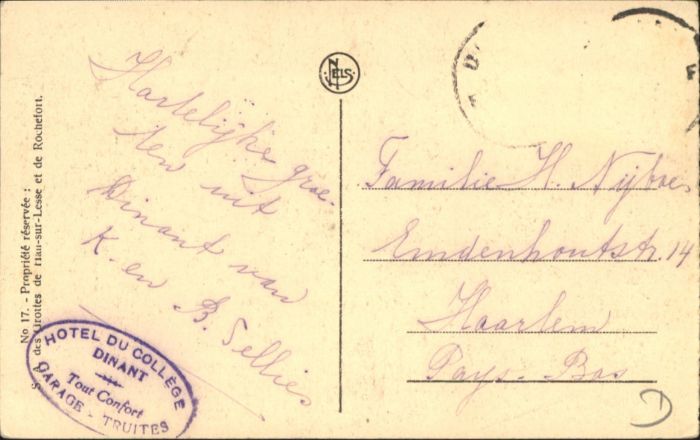 No 17. - Propriété réservée :
S. A. des Grottes de Han-sur-Lesse et de Rochefort.
NELS
Hartelijke groe-
ten uit
Dinant van
K. en B. Sellies
Familie H.
Emdenhoutstr. 14
Haarlem
Pays-Bas
HOTEL DU COLLÈGE
DINANT
Tout Confort
GARAGE - TRUITES
D